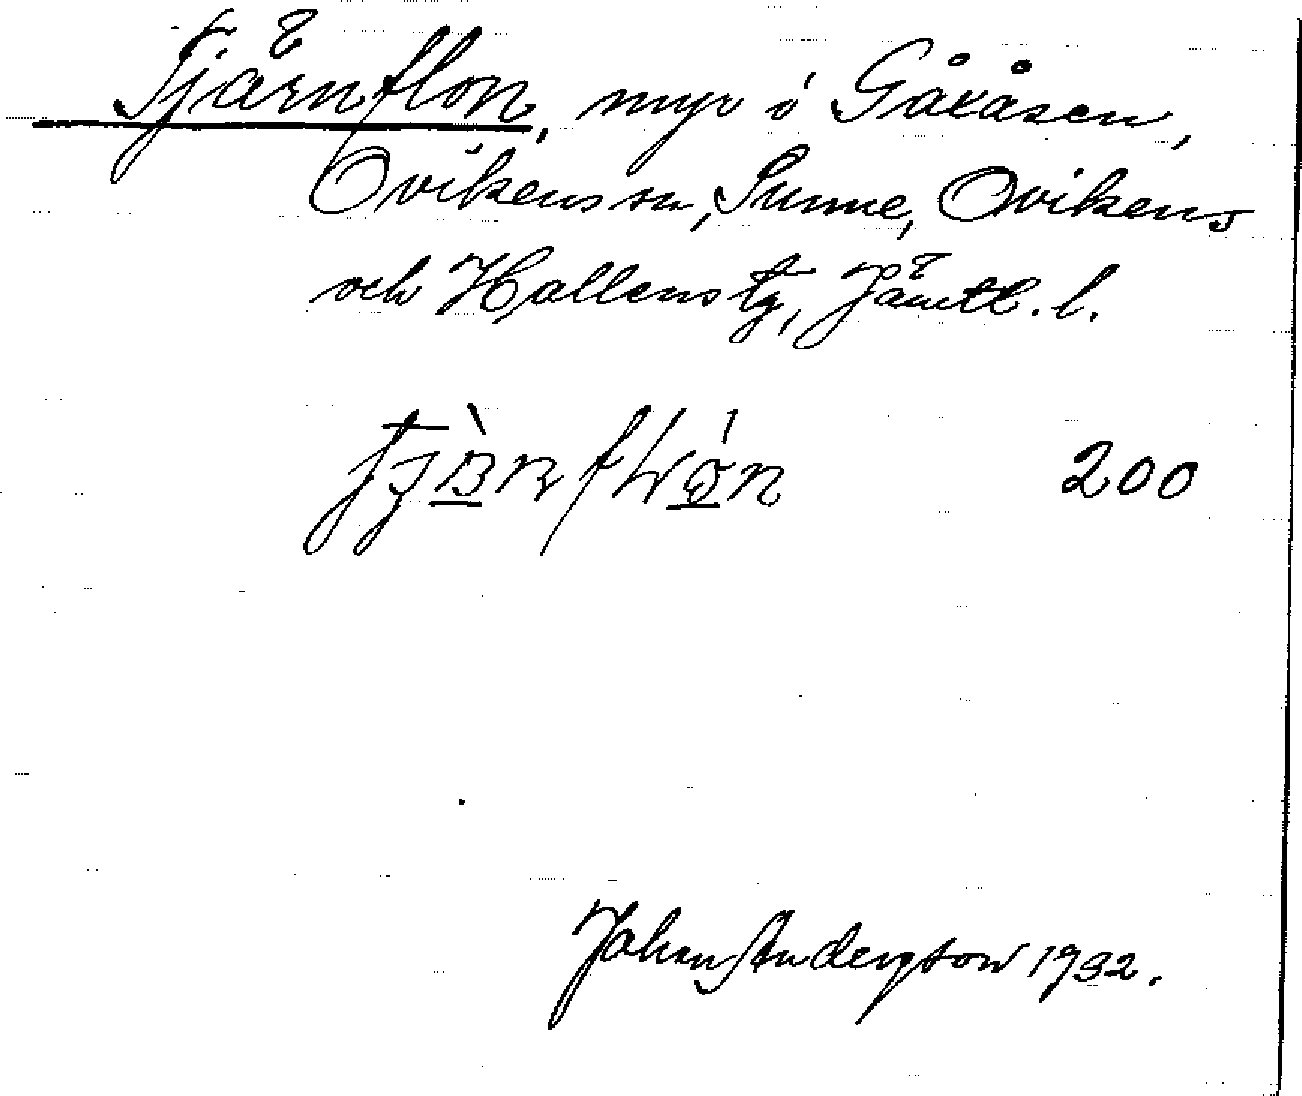 Tjärnflon, myr i Gåxåsen,
Ovikens sn, Sunne, Ovikens
och Hallens tg, Jämtl. l.
200
Johan Anderson 1932.